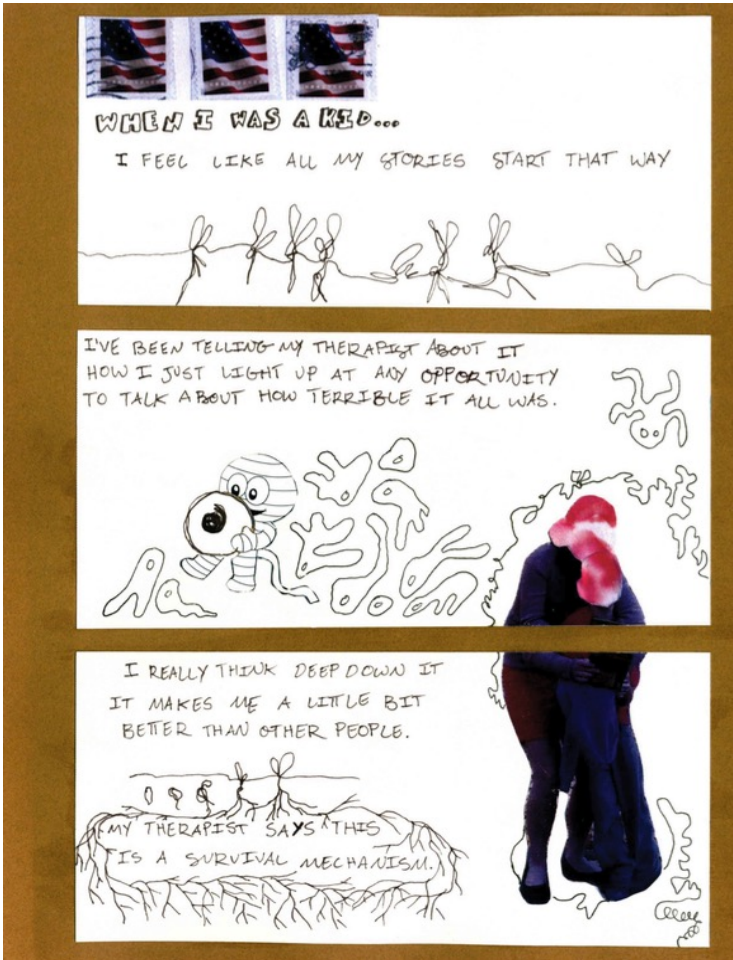 WHEN I WAS A KID...
I FEEL LIKE ALL MY STORIES START THAT WAY
I'VE BEEN TELLING MY THERAPIST ABOUT IT
HOW I JUST LIGHT UP AT ANY OPPORTUNITY
TO TALK ABOUT HOW TERRIBLE IT ALL WAS.
I REALLY THINK DEEP DOWN IT
IT MAKES ME A LITTLE BIT
BETTER THAN OTHER PEOPLE.
MY THERAPIST SAYS THIS
IS A SURVIVAL MECHANISM.